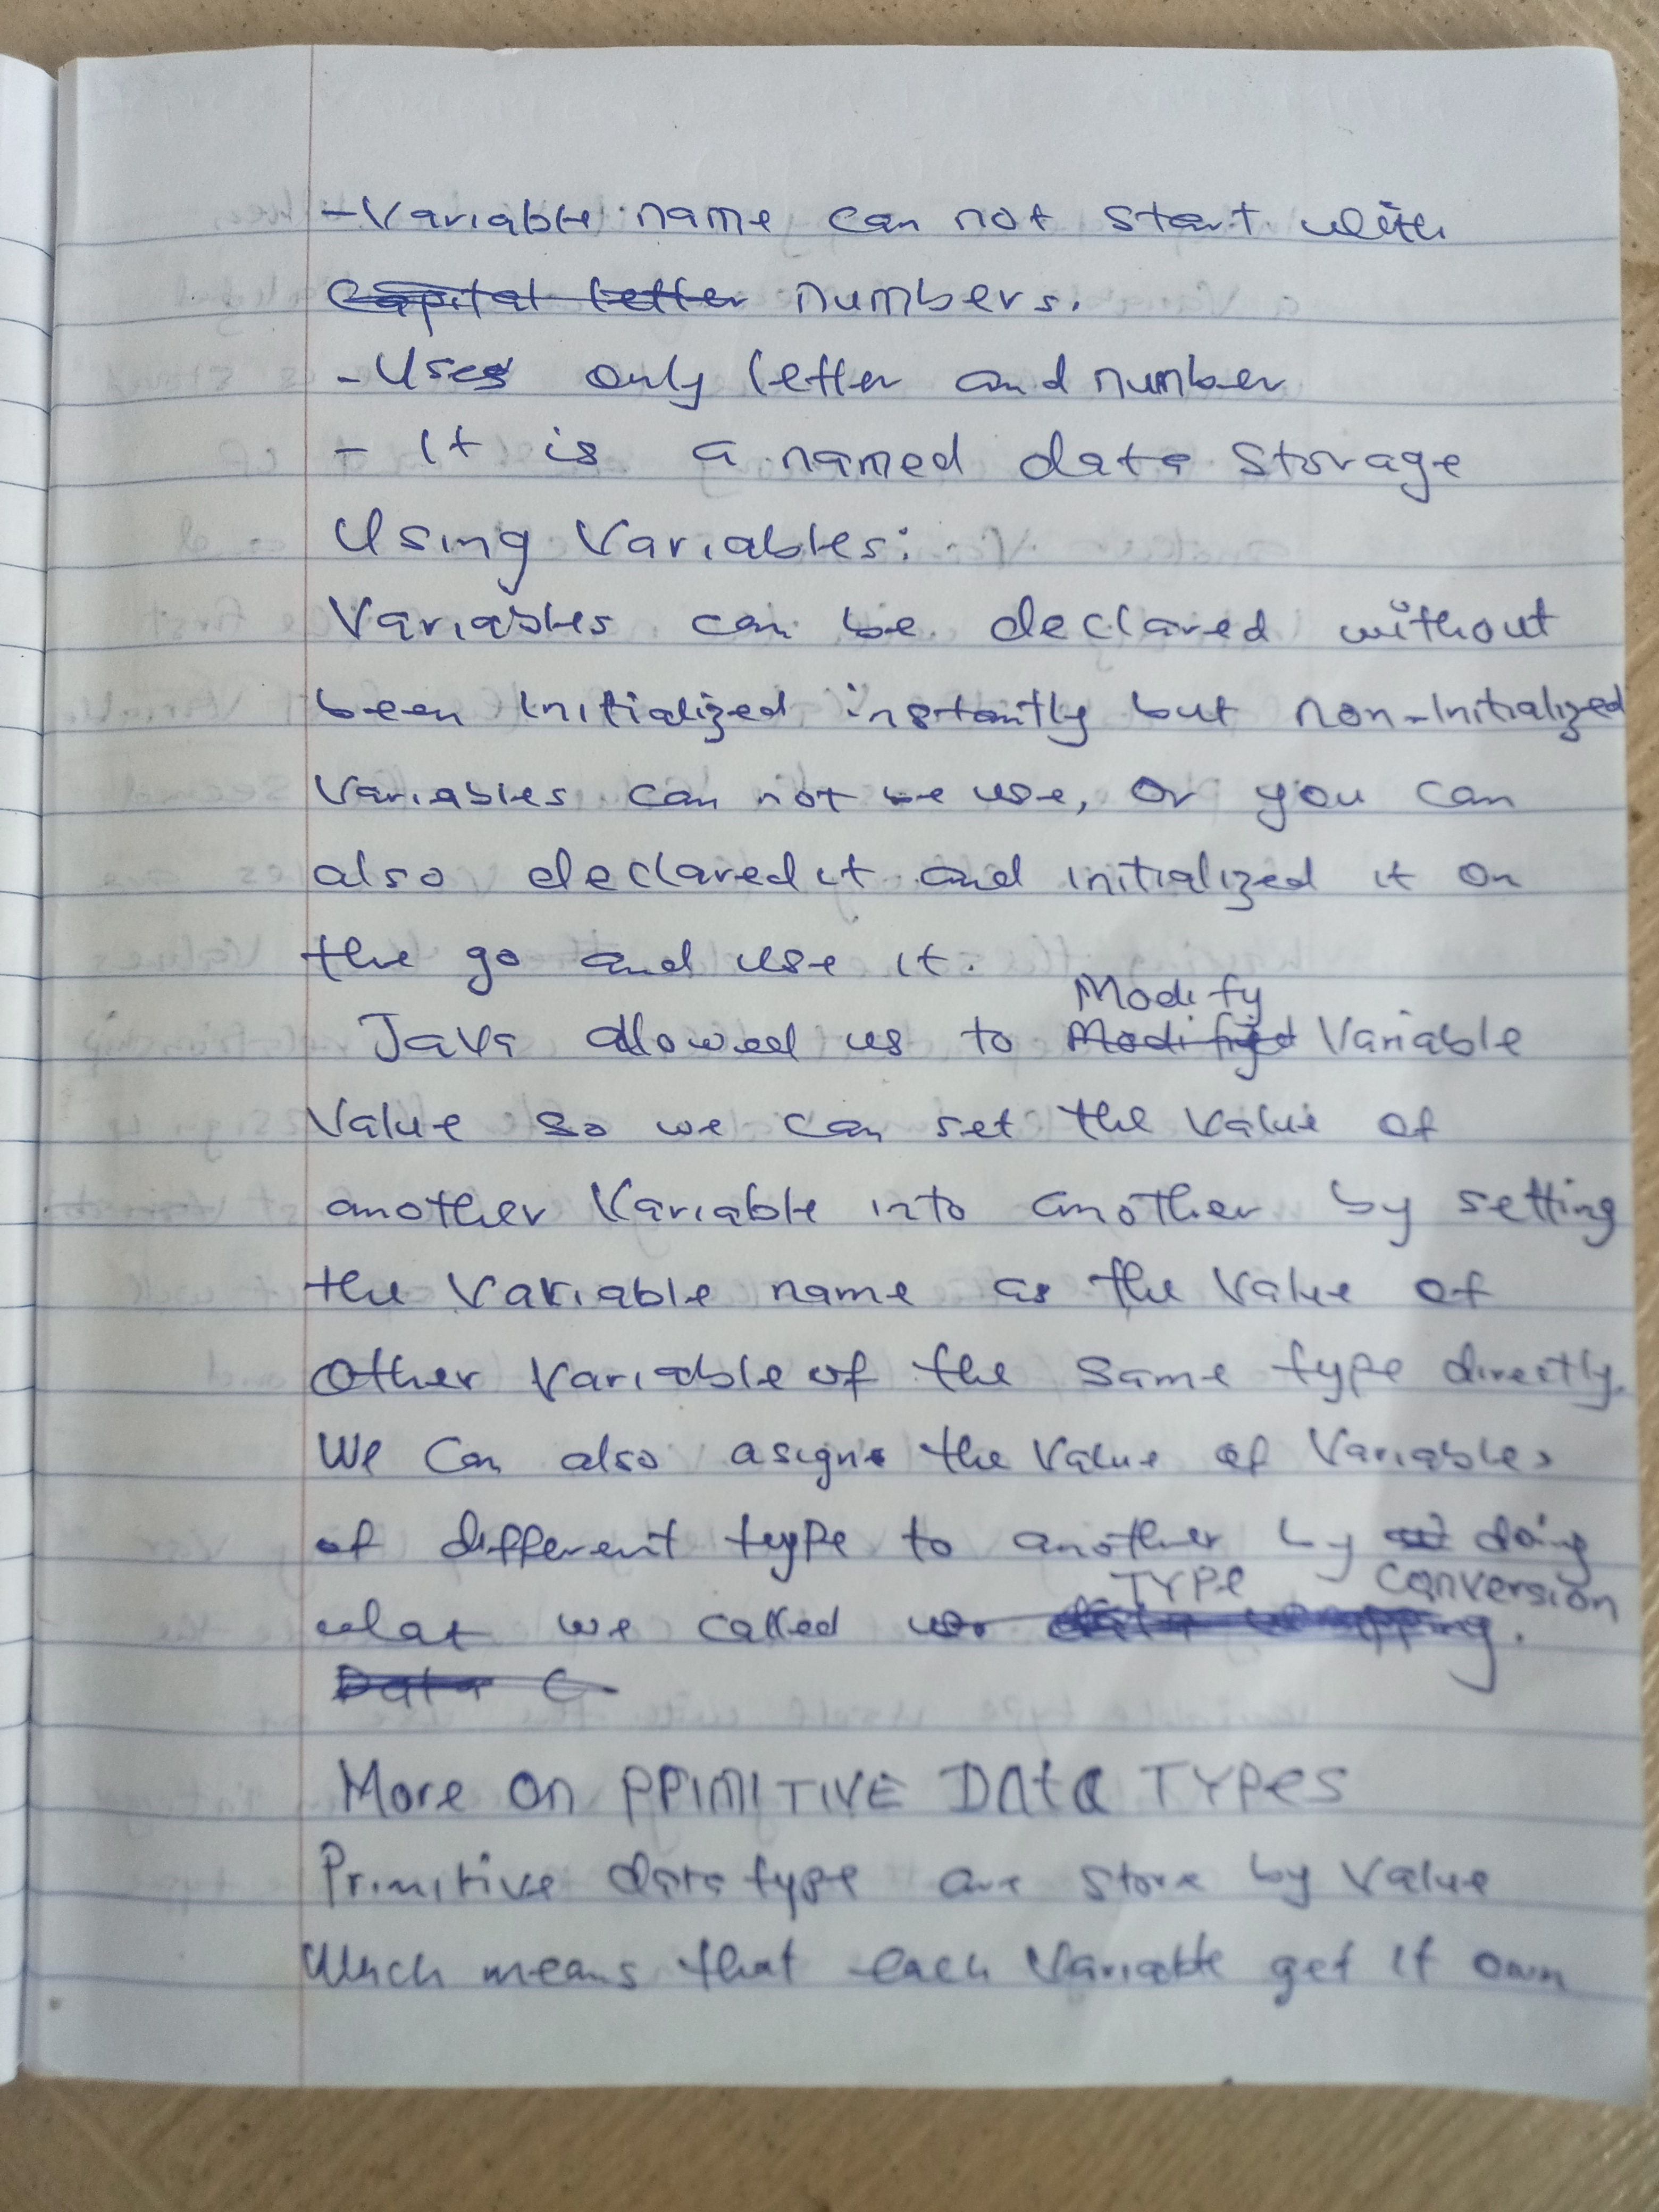 - Variable name can not start with
capital letter numbers.
- Uses only letter and number
- It is a named data storage
Using Variables:
Variables can be declared without
been initialized instantly but non-initialized
Variables can not be use, or you can
also declared it and initialized it on
the go and use it.
Modify
Java allowed us to Modified Variable
Value so we can set the value of
another Variable into another by setting
the Variable name as the Value of
other Variable of the same type directly.
We Can also asigne the Value of Variables
of different type to another by doing
TYPE Conversion
what we called data wrapping.
Data C
More on PRIMITIVE DATA TYPES
Primitive data type are store by Value
Which means that each Variable get it own